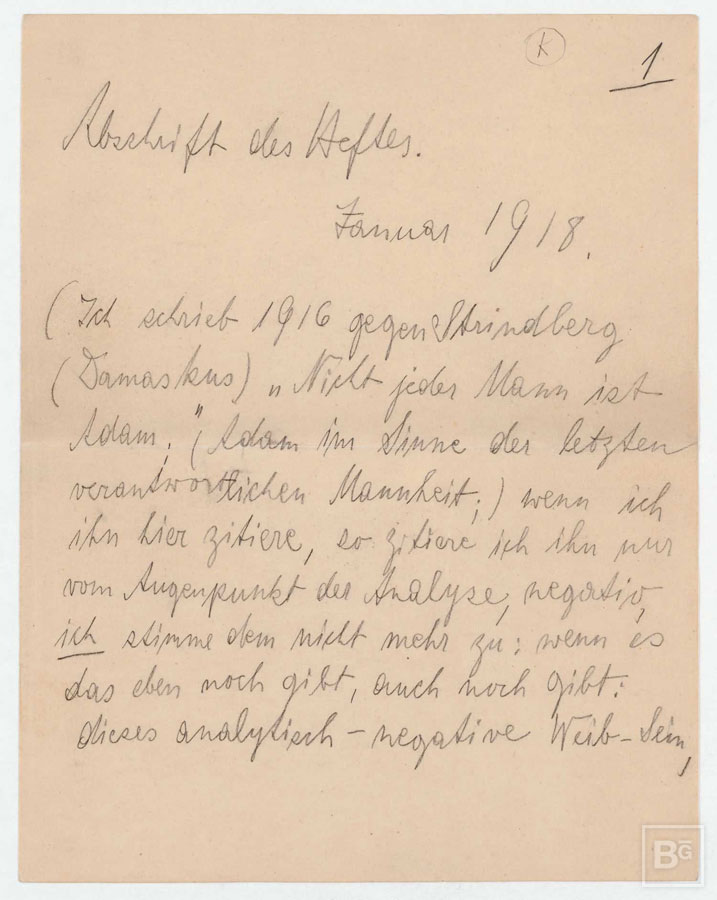 K
1
Abschrift des Heftes.
Januar 1918.
(Ich schrieb 1916 gegen Strindberg
(Damaskus) „Nicht jeder Mann ist
Adam." (Adam im Sinne der letzten
verantwortlichen Mannheit;) wenn ich
ihn hier zitiere, so zitiere ich ihn nur
vom Augenpunkt der Analyse, negativ,
ich stimme dem nicht mehr zu: wenn es
das eben noch gibt, auch noch gibt:
dieses analytisch-negative Weib-Sein,
BG